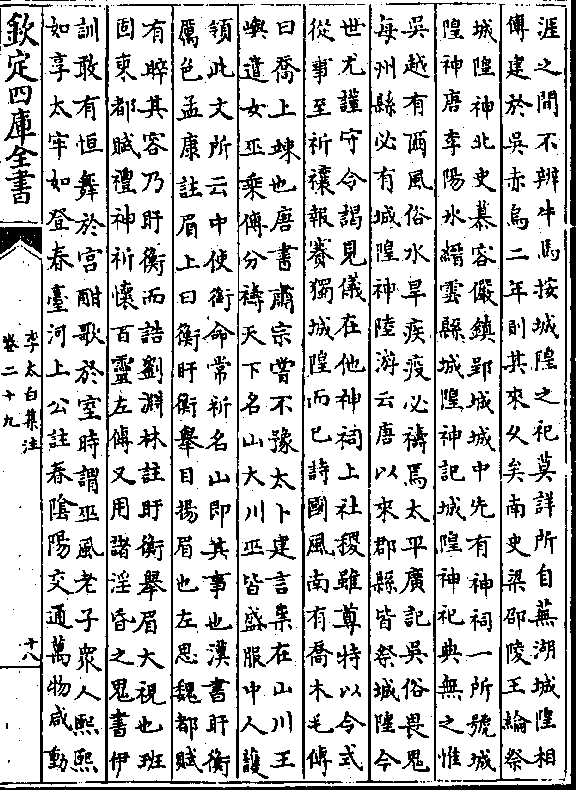 涯之間不辨牛馬按城隍之祀莫詳所自蕪湖城隍相
傳建於吳赤烏二年則其來久矣南史梁邵陵王綸祭
城隍神北史慕容儼鎮郢城城中先有神祠一所號城
隍神唐李陽氷縉雲縣城隍神記城隍神祀典無之惟
吳越有西風俗水旱疾疫必禱焉太平廣記吳俗畏鬼
每州縣必有城隍神陸游云唐以來郡縣皆祭城隍今
世尤謹守令謁見儀在他神祠上社稷雖尊特以令式
從事至祈禳報賽獨城隍而已詩國風南有喬木毛傳
曰喬上竦也唐書肅宗嘗不豫太卜建言祟在山川王
嶼遣女巫乘傳分禱天下名山大川巫皆盛服中人護
領此文所云中使銜命常祈名山即其事也漢書盱衡
厲色孟康註眉上曰衡盱衡舉目揚眉也左思魏都賦
有睟其容乃盱衡而誥劉淵林註盱衡舉眉大視也班
固東都賦禮神祈懷百靈左傳又用諸淫昏之鬼書伊
訓敢有恒舞於宮酣歌於室時謂巫風老子衆人熙熙
如享太牢如登春臺河上公註春陰陽交通萬物咸動
欽定四庫全書
李太白集注
卷二十九
十八